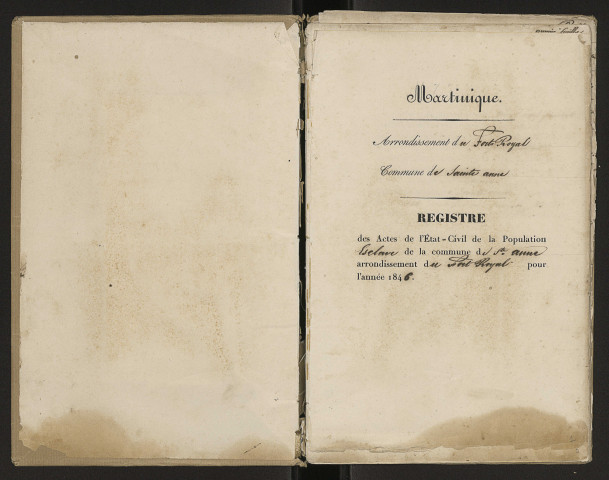 Martinique.
Arrondissement du Fort Royal
Commune de Sainte anne
REGISTRE
des Actes de l'État-Civil de la Population
Esclave de la commune de Ste anne
arrondissement du Fort Royal pour
l'année 1846.